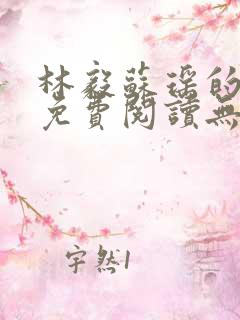 林毅蘇瑶的
免費閱讀無
宇然1